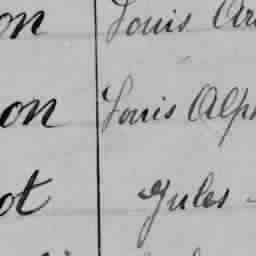 on Louis Ar
on Louis Alph
ot Jules -